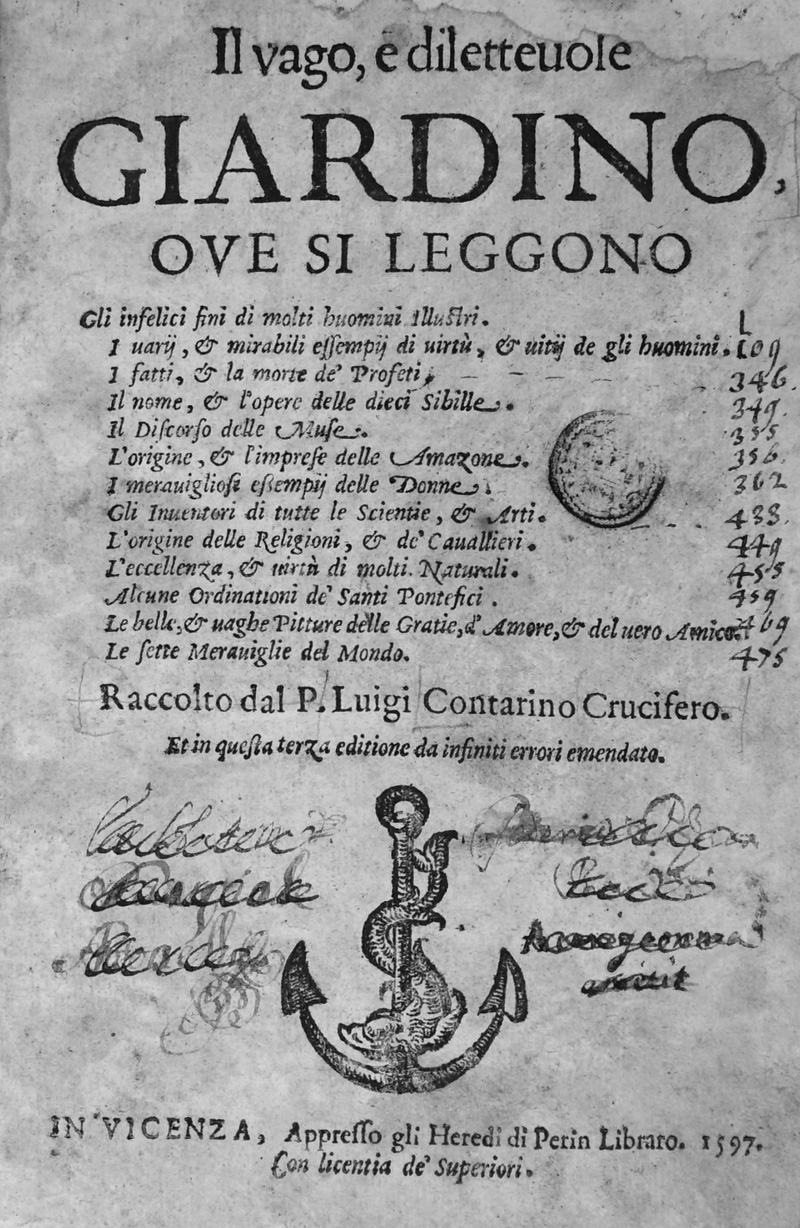 Il vago, e diletteuole
GIARDINO,
OVE SI LEGGONO
Gli infelici fini di molti huomini illuſtri. 1
I uarij, & mirabili eſſempij di uirtù, & uitij de gli huomini. 109
I fatti, & la morte de' Profeti, 346.
Il nome, & l'opere delle dieci Sibille. 349.
Il Diſcorſo delle Muſe. 355
L'origine, & l'impreſe delle Amazone. 356.
I merauiglioſi eſſempij delle Donne. 362
Gli Inuentori di tutte le Scientie, & Arti. 433.
L'origine delle Religioni, & de' Cauallieri. 449
L'eccellenza, & uirtù di molti Naturali. 455
Alcune Ordinationi de' Santi Pontefici. 459
Le belle, & uaghe Pitture delle Gratie, d'Amore, & del uero Amico. 469
Le ſette Merauiglie del Mondo. 475
Raccolto dal P. Luigi Contarino Crucifero.
Et in queſta terza editione da infiniti errori emendato.
IN VICENZA, Appreſſo gli Heredi di Perin Libraro. 1597.
Con licentia de' Superiori.